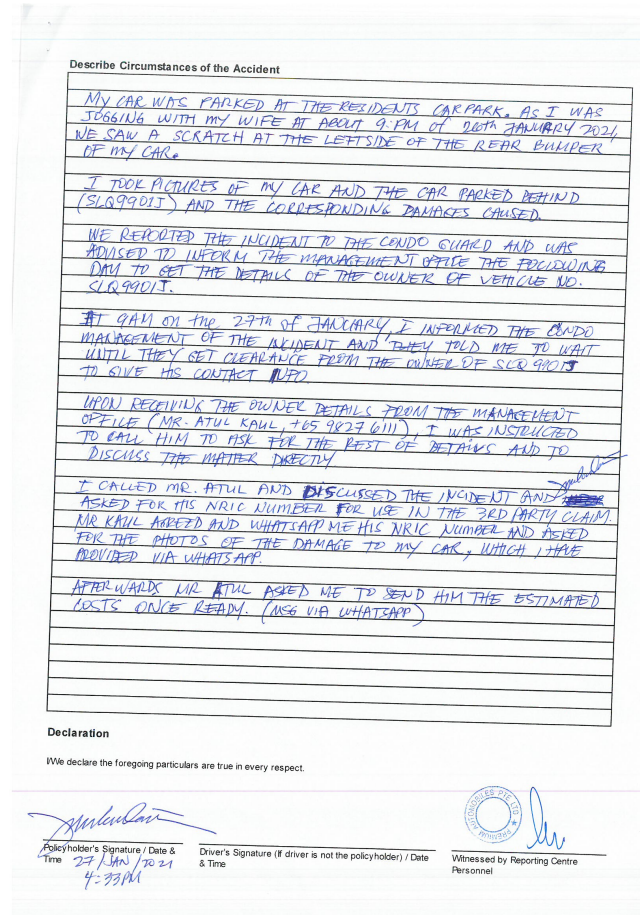 Describe Circumstances of the Accident
MY CAR WAS PARKED AT THE RESIDENTS CARPARK. AS I WAS
JOGGING WITH MY WIFE AT ABOUT 9:PM of 26th JANUARY 2021,
WE SAW A SCRATCH AT THE LEFTSIDE OF THE REAR BUMPER
OF MY CAR.
I TOOK PICTURES OF MY CAR AND THE CAR PARKED BEHIND
(SLQ9901J) AND THE CORRESPONDING DAMAGES CAUSED.
WE REPORTED THE INCIDENT TO THE CONDO GUARD AND WAS
ADVISED TO INFORM THE MANAGEMENT OFFICE THE FOLLOWING
DAY TO GET THE DETAILS OF THE OWNER OF VEHICLE NO.
SLQ9901J.
AT 9AM on the 27th of JANUARY, I INFORMED THE CONDO
MANAGEMENT OF THE INCIDENT AND THEY TOLD ME TO WAIT
UNTIL THEY GET CLEARANCE FROM THE OWNER OF SLQ 9901J
TO GIVE HIS CONTACT INFO.
UPON RECEIVING THE OWNER DETAILS FROM THE MANAGEMENT
OFFICE (MR. ATUL KAUL, +65 9827 6111), I WAS INSTRUCTED
TO CALL HIM TO ASK FOR THE REST OF DETAILS AND TO
DISCUSS THE MATTER DIRECTLY
I CALLED MR. ATUL AND DISCUSSED THE INCIDENT AND
ASKED FOR HIS NRIC NUMBER FOR USE IN THE 3RD PARTY CLAIM.
MR KAUL AGREED AND WHATSAPP ME HIS NRIC NUMBER AND ASKED
FOR THE PHOTOS OF THE DAMAGE TO MY CAR, WHICH I HAVE
PROVIDED VIA WHATSAPP.
AFTERWARDS MR ATUL ASKED ME TO SEND HIM THE ESTIMATED
COSTS ONCE READY. (MSG VIA WHATSAPP)
Declaration
I/We declare the foregoing particulars are true in every respect.
PREMIUM AUTOMOBILES PTE LTD
Policyholder's Signature / Date &
Time
27/JAN/2021
4:33PM
Driver's Signature (If driver is not the policyholder) / Date
& Time
Witnessed by Reporting Centre
Personnel